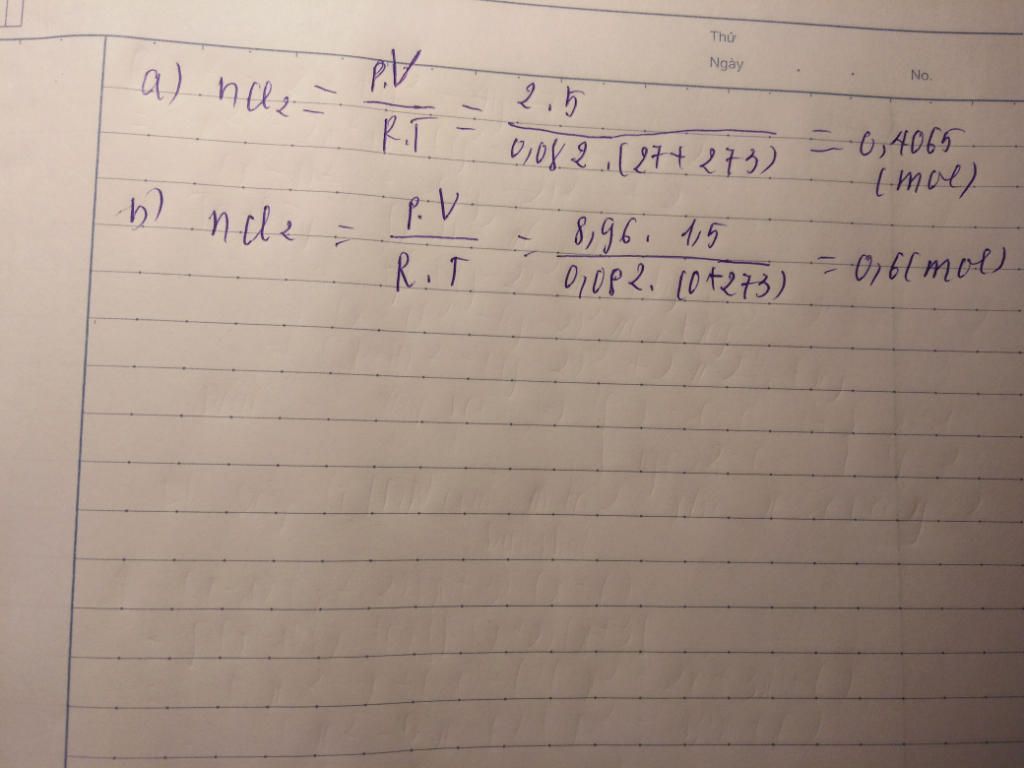 Thứ
Ngày . . No.
a) nCl₂ = P.V / R.T = 2.5 / 0,082.(27+273) = 0,4065
(mol)
b) nCl₂ = P.V / R.T = 8,96. 1,5 / 0,082. (0+273) = 0,6(mol)